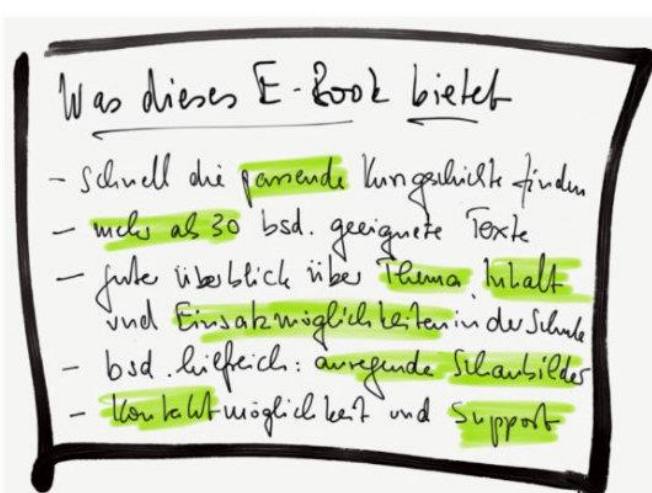 Was dieses E-Book bietet
- Schnell die passende Kurzgeschichte finden
- mehr als 30 bsd. geeignete Texte
- guter überblick über Thema Inhalt
und Einsatzmöglichkeiten in der Schule
- bsd. hilfreich: anregende Schaubilder
- Kontaktmöglichkeit und Support